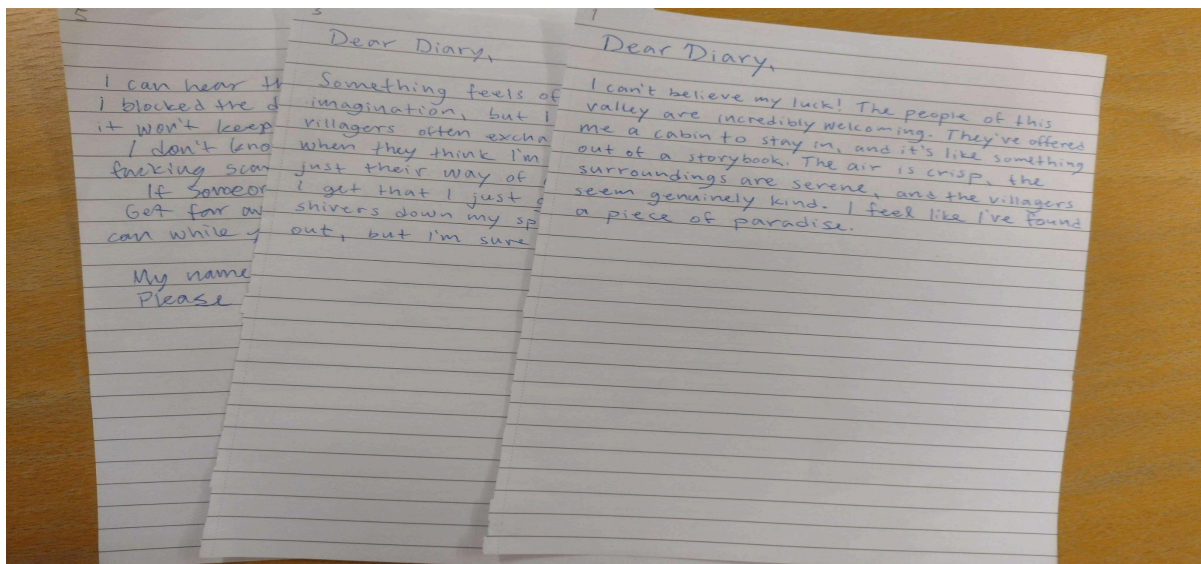 5
I can hear th
I blocked the d
it won't keep
I don't kno
fucking scar
If someon
Get far aw
can while y
My name
Please
3
Dear Diary,
Something feels of
imagination, but I
villagers often excha
when they think I'm
just their way of
I get that I just
shivers down my sp
out, but I'm sure
1
Dear Diary,
I can't believe my luck! The people of this
valley are incredibly welcoming. They've offered
me a cabin to stay in, and it's like something
out of a storybook. The air is crisp, the
surroundings are serene, and the villagers
seem genuinely kind. I feel like I've found
a piece of paradise.